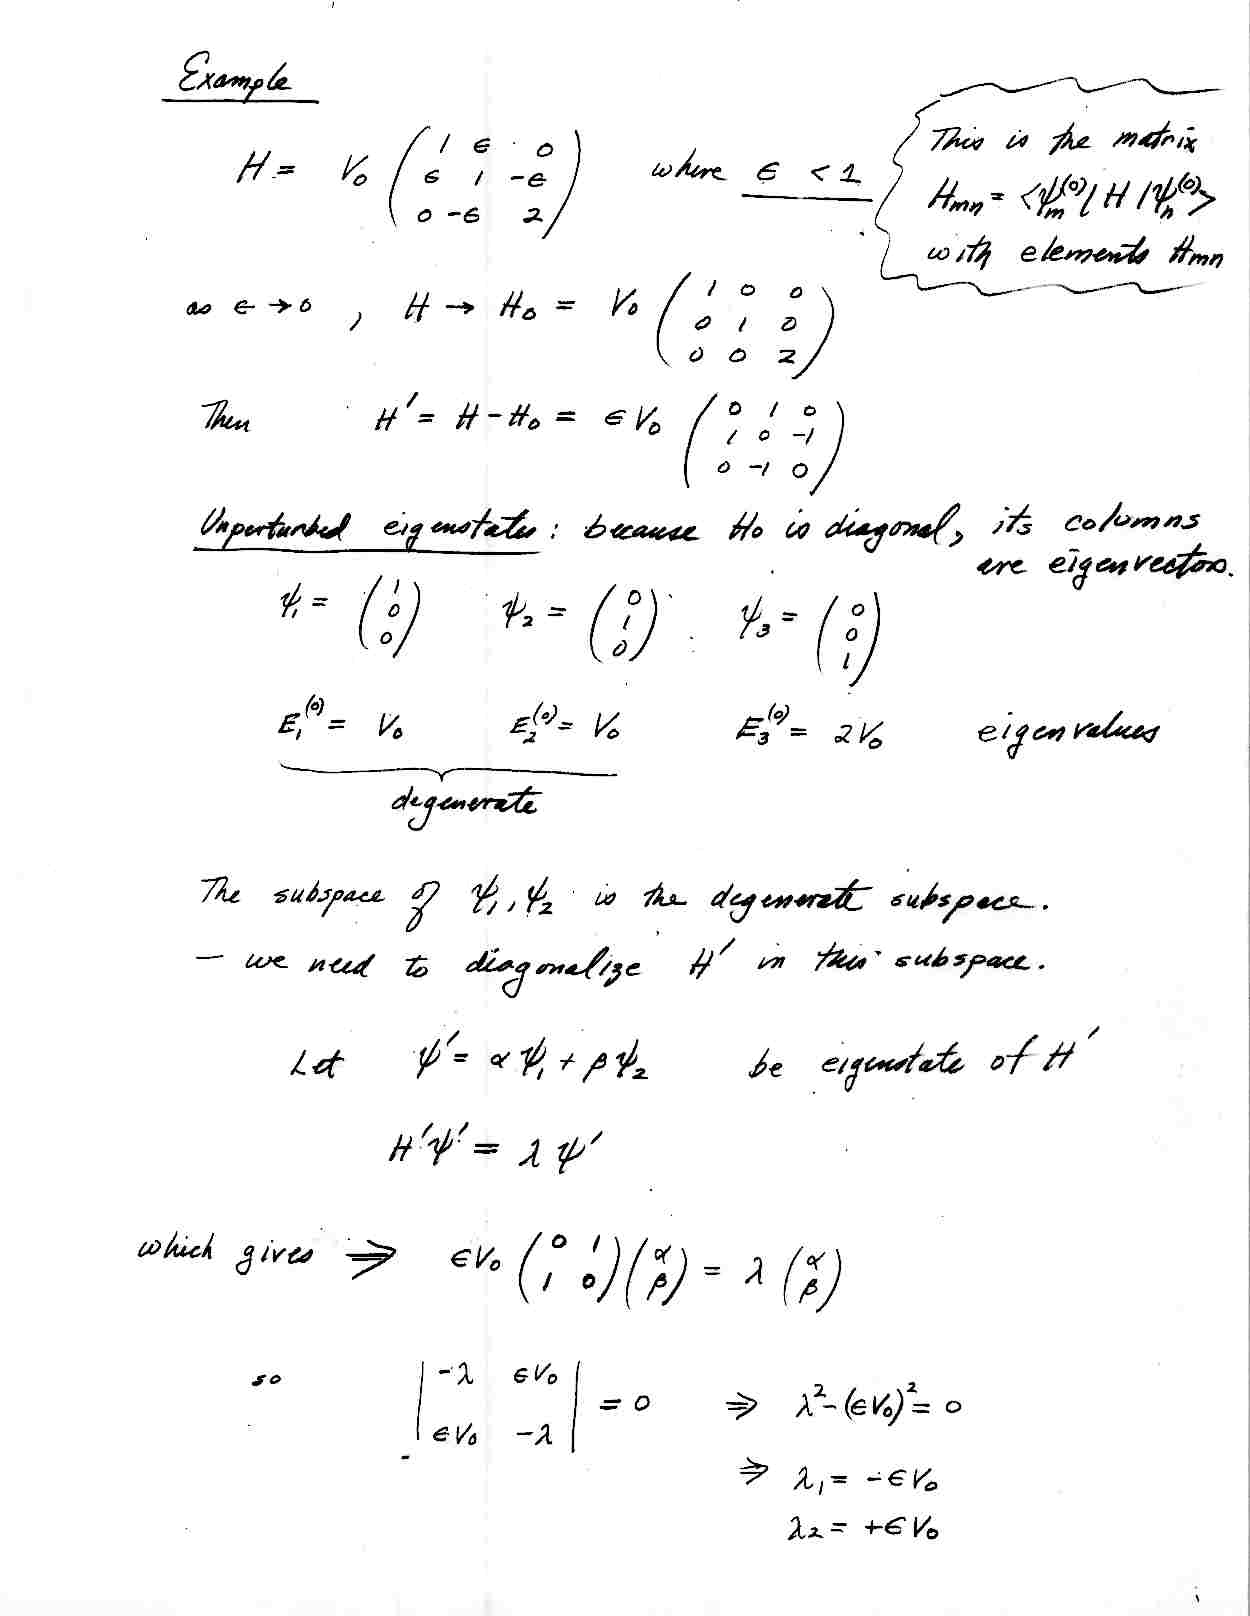 Example
H = V₀ ( 1 ϵ 0 ; ϵ 1 -ϵ ; 0 -ϵ 2 ) where ϵ < 1
This is the matrix
Hmn = <ψm^(0)| H |ψn^(0)>
with elements Hmn
as ϵ → 0 , H → H₀ = V₀ ( 1 0 0 ; 0 1 0 ; 0 0 2 )
Then H' = H - H₀ = ϵV₀ ( 0 1 0 ; 1 0 -1 ; 0 -1 0 )
Unperturbed eigenstates : because H₀ is diagonal, its columns
are eigenvectors.
ψ₁ = ( 1 ; 0 ; 0 ) ψ₂ = ( 0 ; 1 ; 0 ) ψ₃ = ( 0 ; 0 ; 1 )
E₁^(0) = V₀ E₂^(0) = V₀ E₃^(0) = 2V₀ eigenvalues
degenerate
The subspace of ψ₁, ψ₂ is the degenerate subspace.
— we need to diagonalize H' in this subspace.
Let ψ' = αψ₁ + βψ₂ be eigenstate of H'
H'ψ' = λψ'
which gives ⇒ ϵV₀ ( 0 1 ; 1 0 ) ( α ; β ) = λ ( α ; β )
so | -λ ϵV₀ ; ϵV₀ -λ | = 0 ⇒ λ² - (ϵV₀)² = 0
⇒ λ₁ = -ϵV₀
λ₂ = +ϵV₀